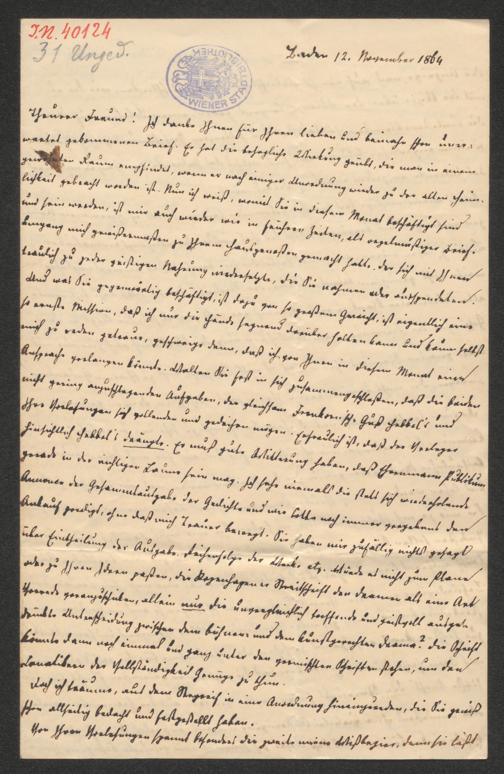 I.N. 40124
31 Unged.
WIENER STADTBIBLIOTHEK
Baden 12. November 1864
Theurer Freund! Ich danke Ihnen für Ihren lieben und beinahe schon uner-
wartet gekommenen Brief. Er hat die behagliche Wirkung geübt, die man in einem
Raum empfindet, wenn er nach einiger Unordnung wieder zu der alten Heim-
lichkeit gebracht worden ist. Nun ich weiß, womit Sie in diesem Monat beschäftigt sind
und sein werden, ist mir auch wieder wie in frühern Zeiten, als regelmäßiger Brief-
umgang mich gewissermaßen zu Ihrem Hausgenossen gemacht hatte, der sich mit Ihnen
traulich zu jeder geistigen Nahrung niedersetzte, die Sie nahmen oder ausspendeten.
Und was Sie gegenwärtig beschäftigt, ist dazu von so großem Gewicht, ist eigentlich eine
so ernste Mission, daß ich nur die Hände segnend darüber halten kann und kaum selbst
mich zu reden getraue, geschweige denn, daß ich von Ihnen in diesem Monat eine
Ansprache verlangen könnte. Wollen Sie fest in sich zusammengeschlossen, daß die beiden
nicht gering anzuschlagenden Aufgaben, der gleichsam Hebbel's und
Ihre Vorlesungen sich vollenden und gedeihen mögen. Erfreulich ist, daß der Verleger
hinsichtlich Hebbel's drängte. Er muß gute Witterung haben, daß Ehrenmann Publikum
gerade in der richtigen Laune sein mag. Ich sehe niemals die stets sich wiederholende
Annonce der Gesammtausgabe der Gedichte und wie Cotta noch immer vergebens den
Ankauf predigt, ohne daß mich Trauer bewegt. Sie haben mir zufällig nichts gesagt
über Eintheilung der Ausgabe, Reihenfolge der Werke etc. Würde es nicht zum Plane
oder zu Ihren Ideen passen, die Kopenhagener Streitschrift den Dramen als eine Art
Vorrede voranzuschicken, allein nur die unvergleichlich treffende und geistvoll ausge-
drückte Unterscheidung zwischen dem bühnen- und dem kunstgerechten Drama? die Schrift
könnte dann noch einmal und ganz unter den vermischten Schriften stehen, um den
Fanatikern der Vollständigkeit Genüge zu thun.
Doch ich träume, aus dem Stegreif in eine Anordnung hineinzureden, die Sie gewiß
schon allseitig bedacht und festgestellt haben.
Von Ihren Vorlesungen spannt besonders die zweite meine Wißbegier, denn sie läßt